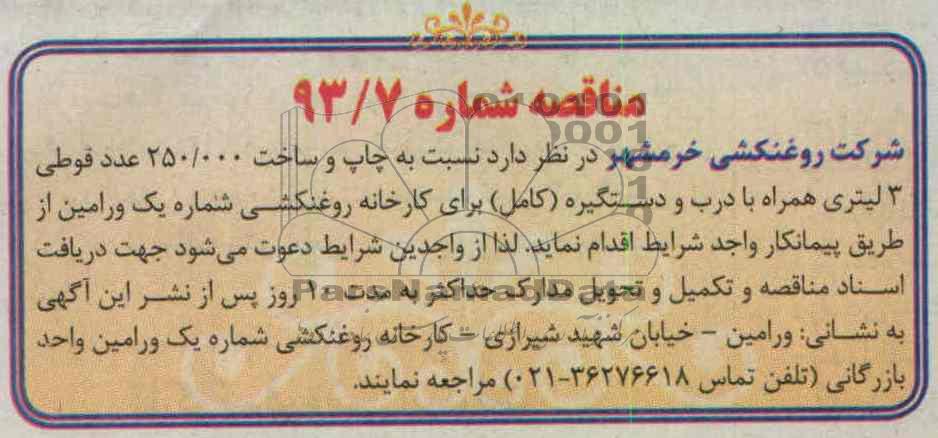 مناقصه شماره ۹۳/۷
شرکت روغنکشی خرمشهر در نظر دارد نسبت به چاپ و ساخت ۲۵۰/۰۰۰ عدد قوطی
۳ لیتری همراه با درب و دستگیره (کامل) برای کارخانه روغنکشی شماره یک ورامین از
طریق پیمانکار واجد شرایط اقدام نماید. لذا از واجدین شرایط دعوت می‌شود جهت دریافت
اسناد مناقصه و تکمیل و تحویل مدارک حداکثر به مدت ۱۰ روز پس از نشر این آگهی
به نشانی: ورامین - خیابان شهید شیرازی - کارخانه روغنکشی شماره یک ورامین واحد
بازرگانی (تلفن تماس ۳۶۲۷۶۶۱۸-۰۲۱) مراجعه نمایند.
ParsNamadData